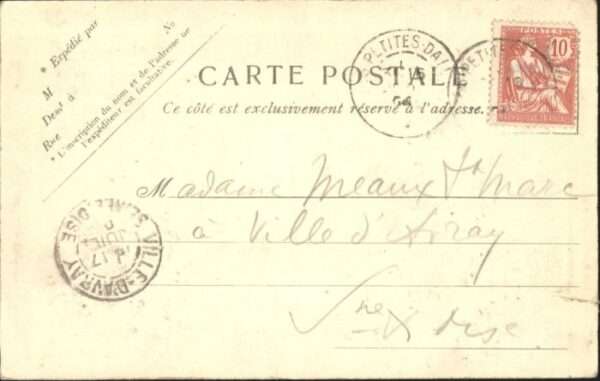 * Expédié par
No
M
Demt à
Rue
* L'inscription du nom et de l'adresse de
l'expéditeur est facultative.
CARTE POSTALE
Ce côté est exclusivement réservé à l'adresse.
PETITES-DA
04
PETITES
POSTES
10
REPUBLIQUE FRANÇAISE
Madame Meaux St Marc
à Ville d'Avray
Sne & Oise
VILLE-D'AVRAY
17
JUIL
SNE-ET-OISE